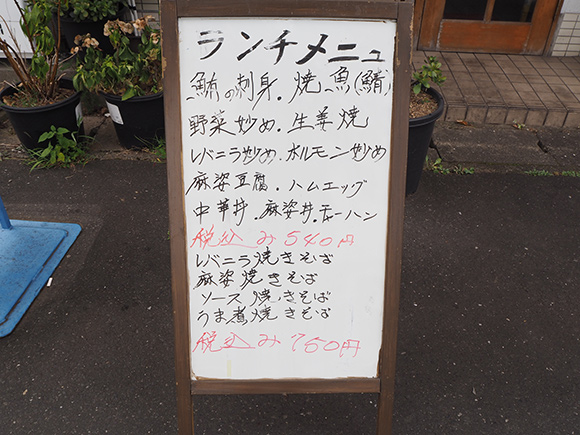 ランチメニュー
鮪の刺身・焼魚(鯖)
野菜炒め・生姜焼
レバニラ炒め・ホルモン炒め
麻婆豆腐・ハムエッグ
中華丼・麻婆丼・チャーハン
税込み540円
レバニラ焼きそば
麻婆焼きそば
ソース焼きそば
うま煮焼きそば
税込み760円